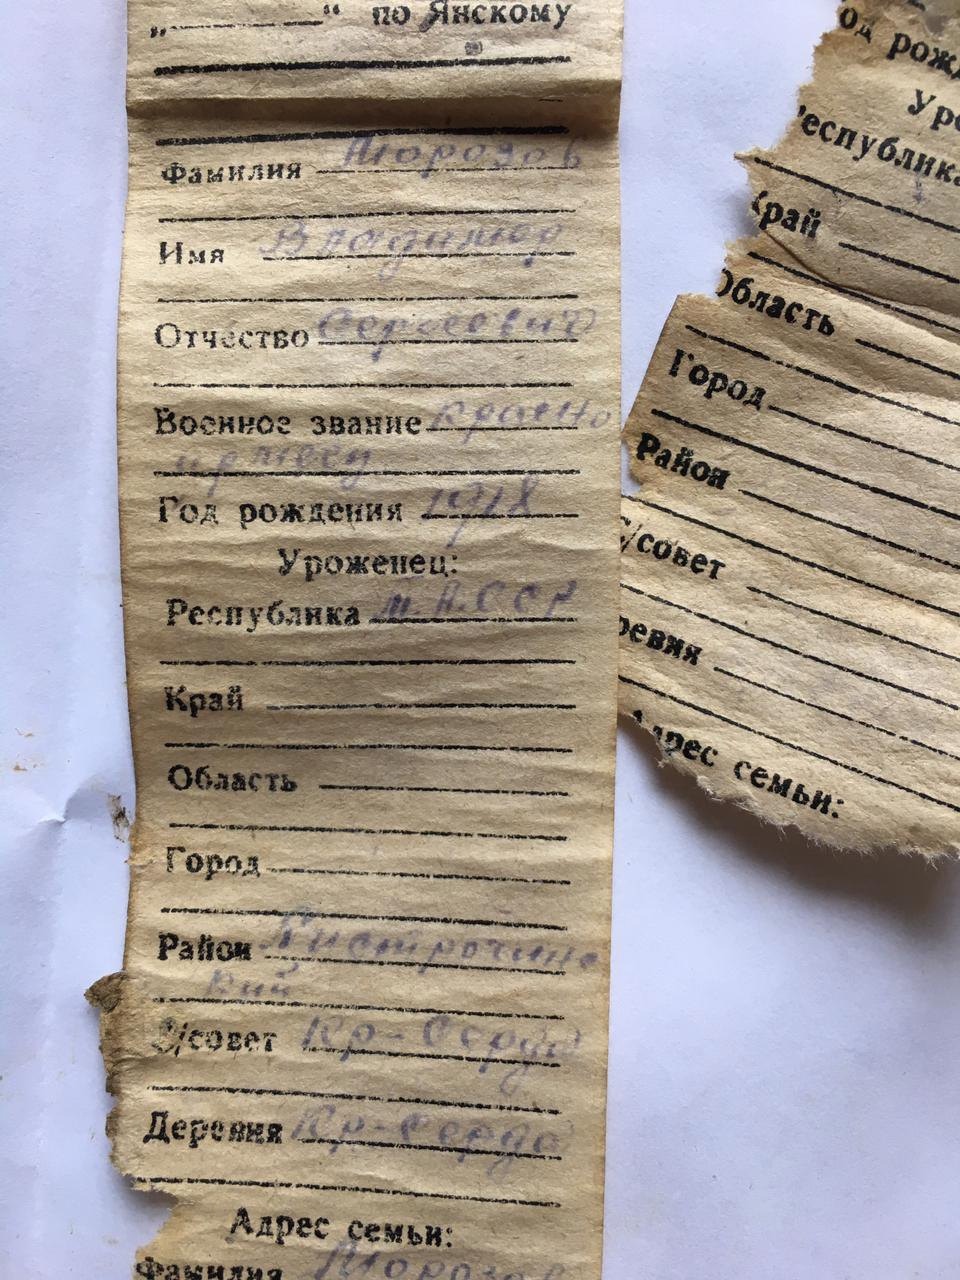 „ “ по Янскому
Фамилия Морозов
Имя Владимир
Отчество Сергеевич
Военное звание красно
армеец
Год рождения 1918
Уроженец:
Республика Т.А.ССР
Край
Область
Город
Район Пистречинс
кий
С/совет Кр-Серда
Деревня Кр-Серда
Адрес семьи:
Фамилия Морозов
од рожд
Уро
еспублика
Край
Область
Город
Район
С/совет
ревня
Адрес семьи: